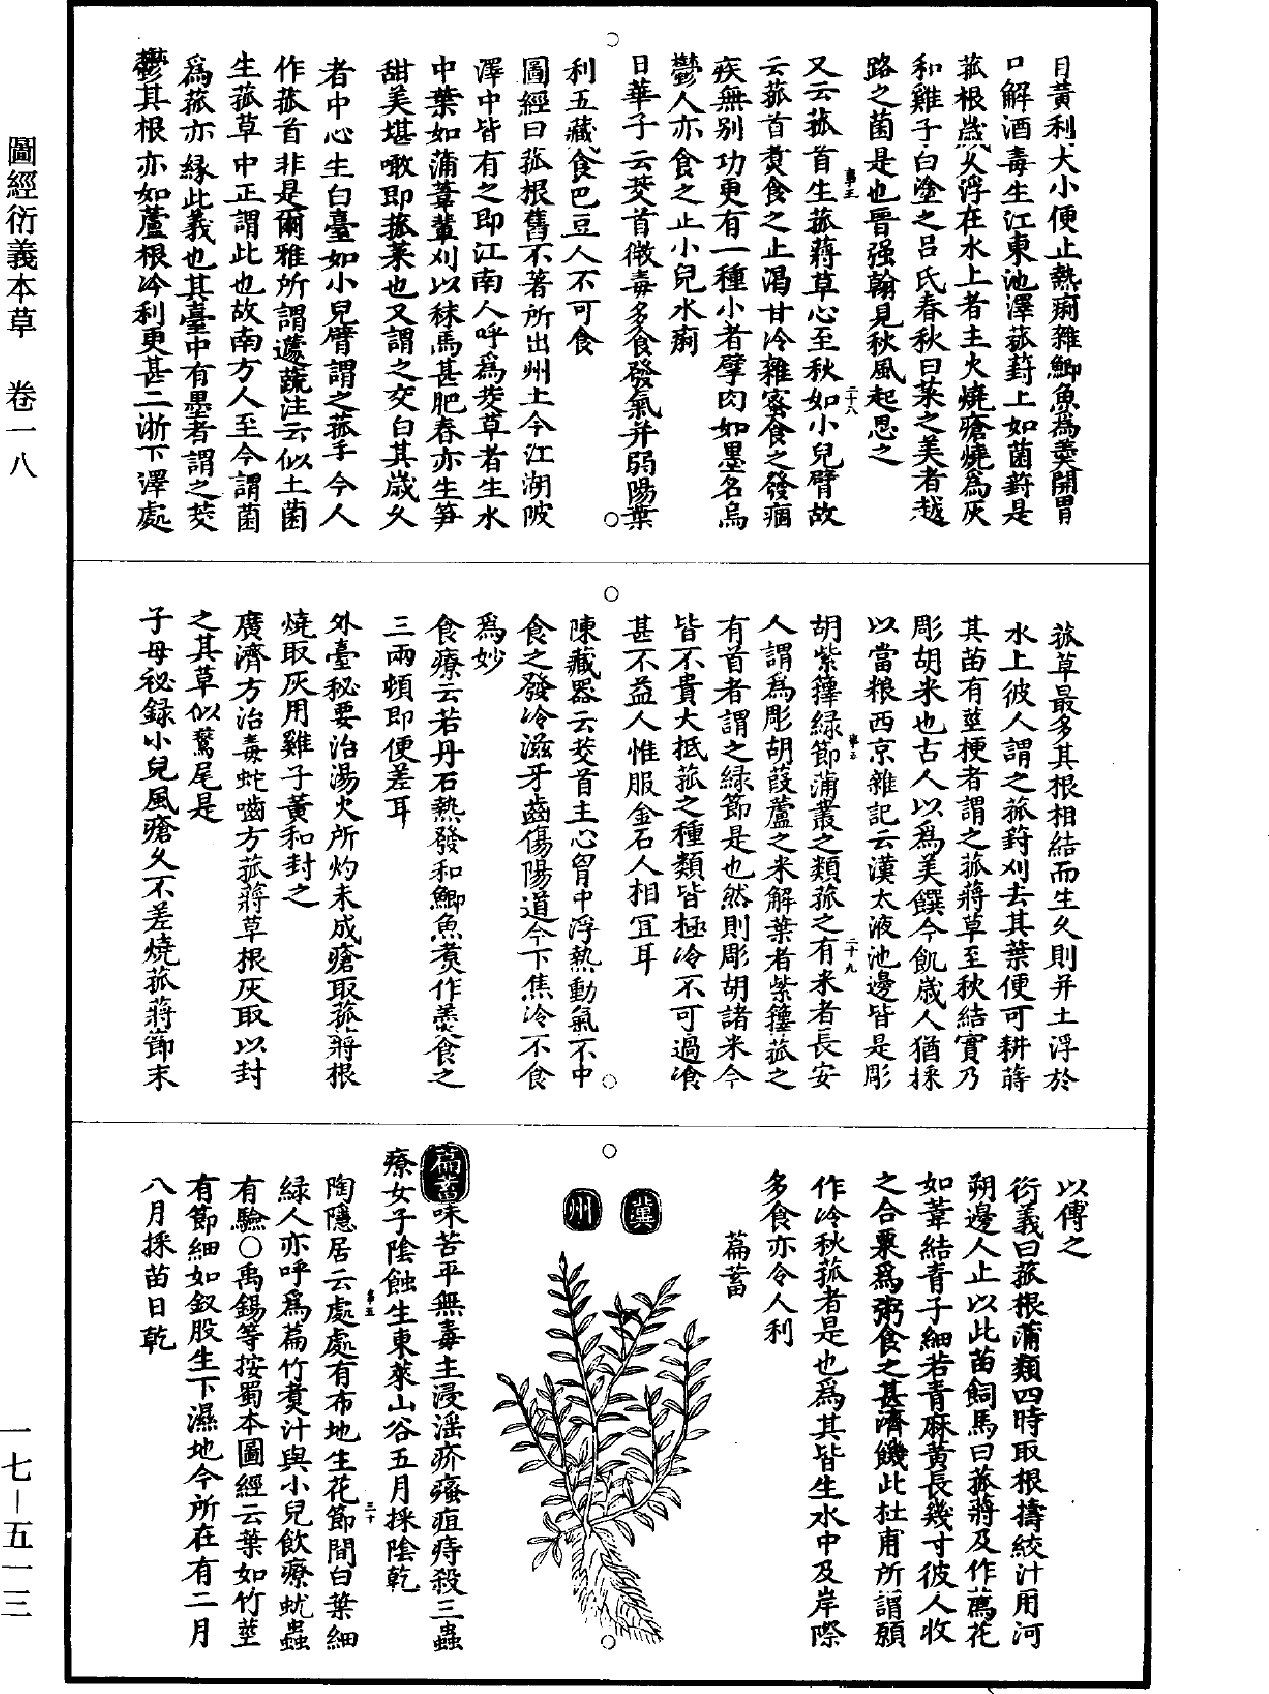 目黃利大小便止熱痢雜鯽魚為羹開胃
口解酒毒生江東池澤菰葑上如菌葑是
菰根歲久浮在水上者主火燒瘡燒為灰
和雞子白塗之呂氏春秋曰菜之美者越
路之菌是也晉張翰見秋風起思之
又云菰首生菰蔣草心至秋如小兒臂故
云菰首煑食之止渴甘冷雜蜜食之發痼
疾無别功更有一種小者擘肉如墨名烏
鬱人亦食之止小兒水痢
日華子云茭首微毒多食發氣并弱陽葉
利五藏食巴豆人不可食
圖經曰菰根舊不著所出州土今江湖陂
澤中皆有之即江南人呼為茭草者生水
中葉如蒲葦輩刈以秣馬甚肥春亦生笋
甜美堪噉即菰菜也又謂之茭白其歲久
者中心生白臺如小兒臂謂之菰手今人
作菰首非是爾雅所謂蘧蔬注云似土菌
生菰草中正謂此也故南方人至今謂菌
為菰亦緣此義也其臺中有墨者謂之茭
鬱其根亦如蘆根冷利更甚二浙下澤處
菰草最多其根相結而生久則并土浮於
水上彼人謂之菰葑刈去其葉便可耕蒔
其苗有莖梗者謂之菰蔣草至秋結實乃
彫胡米也古人以為美饌今飢歲人猶採
以當粮西京雜記云漢太液池邊皆是彫
胡紫籜緑節蒲叢之類菰之有米者長安
人謂為彫胡葭蘆之米解葉者紫籜菰之
有首者謂之緑節是也然則彫胡諸米今
皆不貴大抵菰之種類皆極冷不可過飡
甚不益人惟服金石人相宜耳
陳藏器云茭首主心胷中浮熱動氣不中
食之發冷滋牙齒傷陽道令下焦冷不食
為妙
食療云若丹石熱發和鯽魚煑作羹食之
三兩頓即便差耳
外臺秘要治湯火所灼未成瘡取菰蔣根
燒取灰用雞子黃和封之
廣濟方治毒蛇嚙方菰蔣草根灰取以封
之其草似鷰尾是
子母秘録小兒風瘡久不差燒菰蔣節末
以傅之
衍義曰菰根蒲類四時取根擣絞汁用河
朔邊人止以此苗飼馬曰菰蔣及作薦花
如葦結青子細若青麻黃長幾寸彼人收
之合粟為粥食之甚濟饑此杜甫所謂願
作冷秋菰者是也為其皆生水中及岸際
多食亦令人利
萹蓄
冀
州
萹蓄味苦平無毒主浸滛疥瘙疽痔殺三蟲
療女子陰蝕生東萊山谷五月採陰乾
陶隱居云處處有布地生花節間白葉細
緑人亦呼為萹竹煑汁與小兒飲療蚘蟲
有驗〇禹錫等按蜀本圖經云葉如竹莖
有節細如釵股生下濕地今所在有二月
八月採苗日乾
二十八
二十九
三十
圖經衍義本草　卷一八
一七—五一三